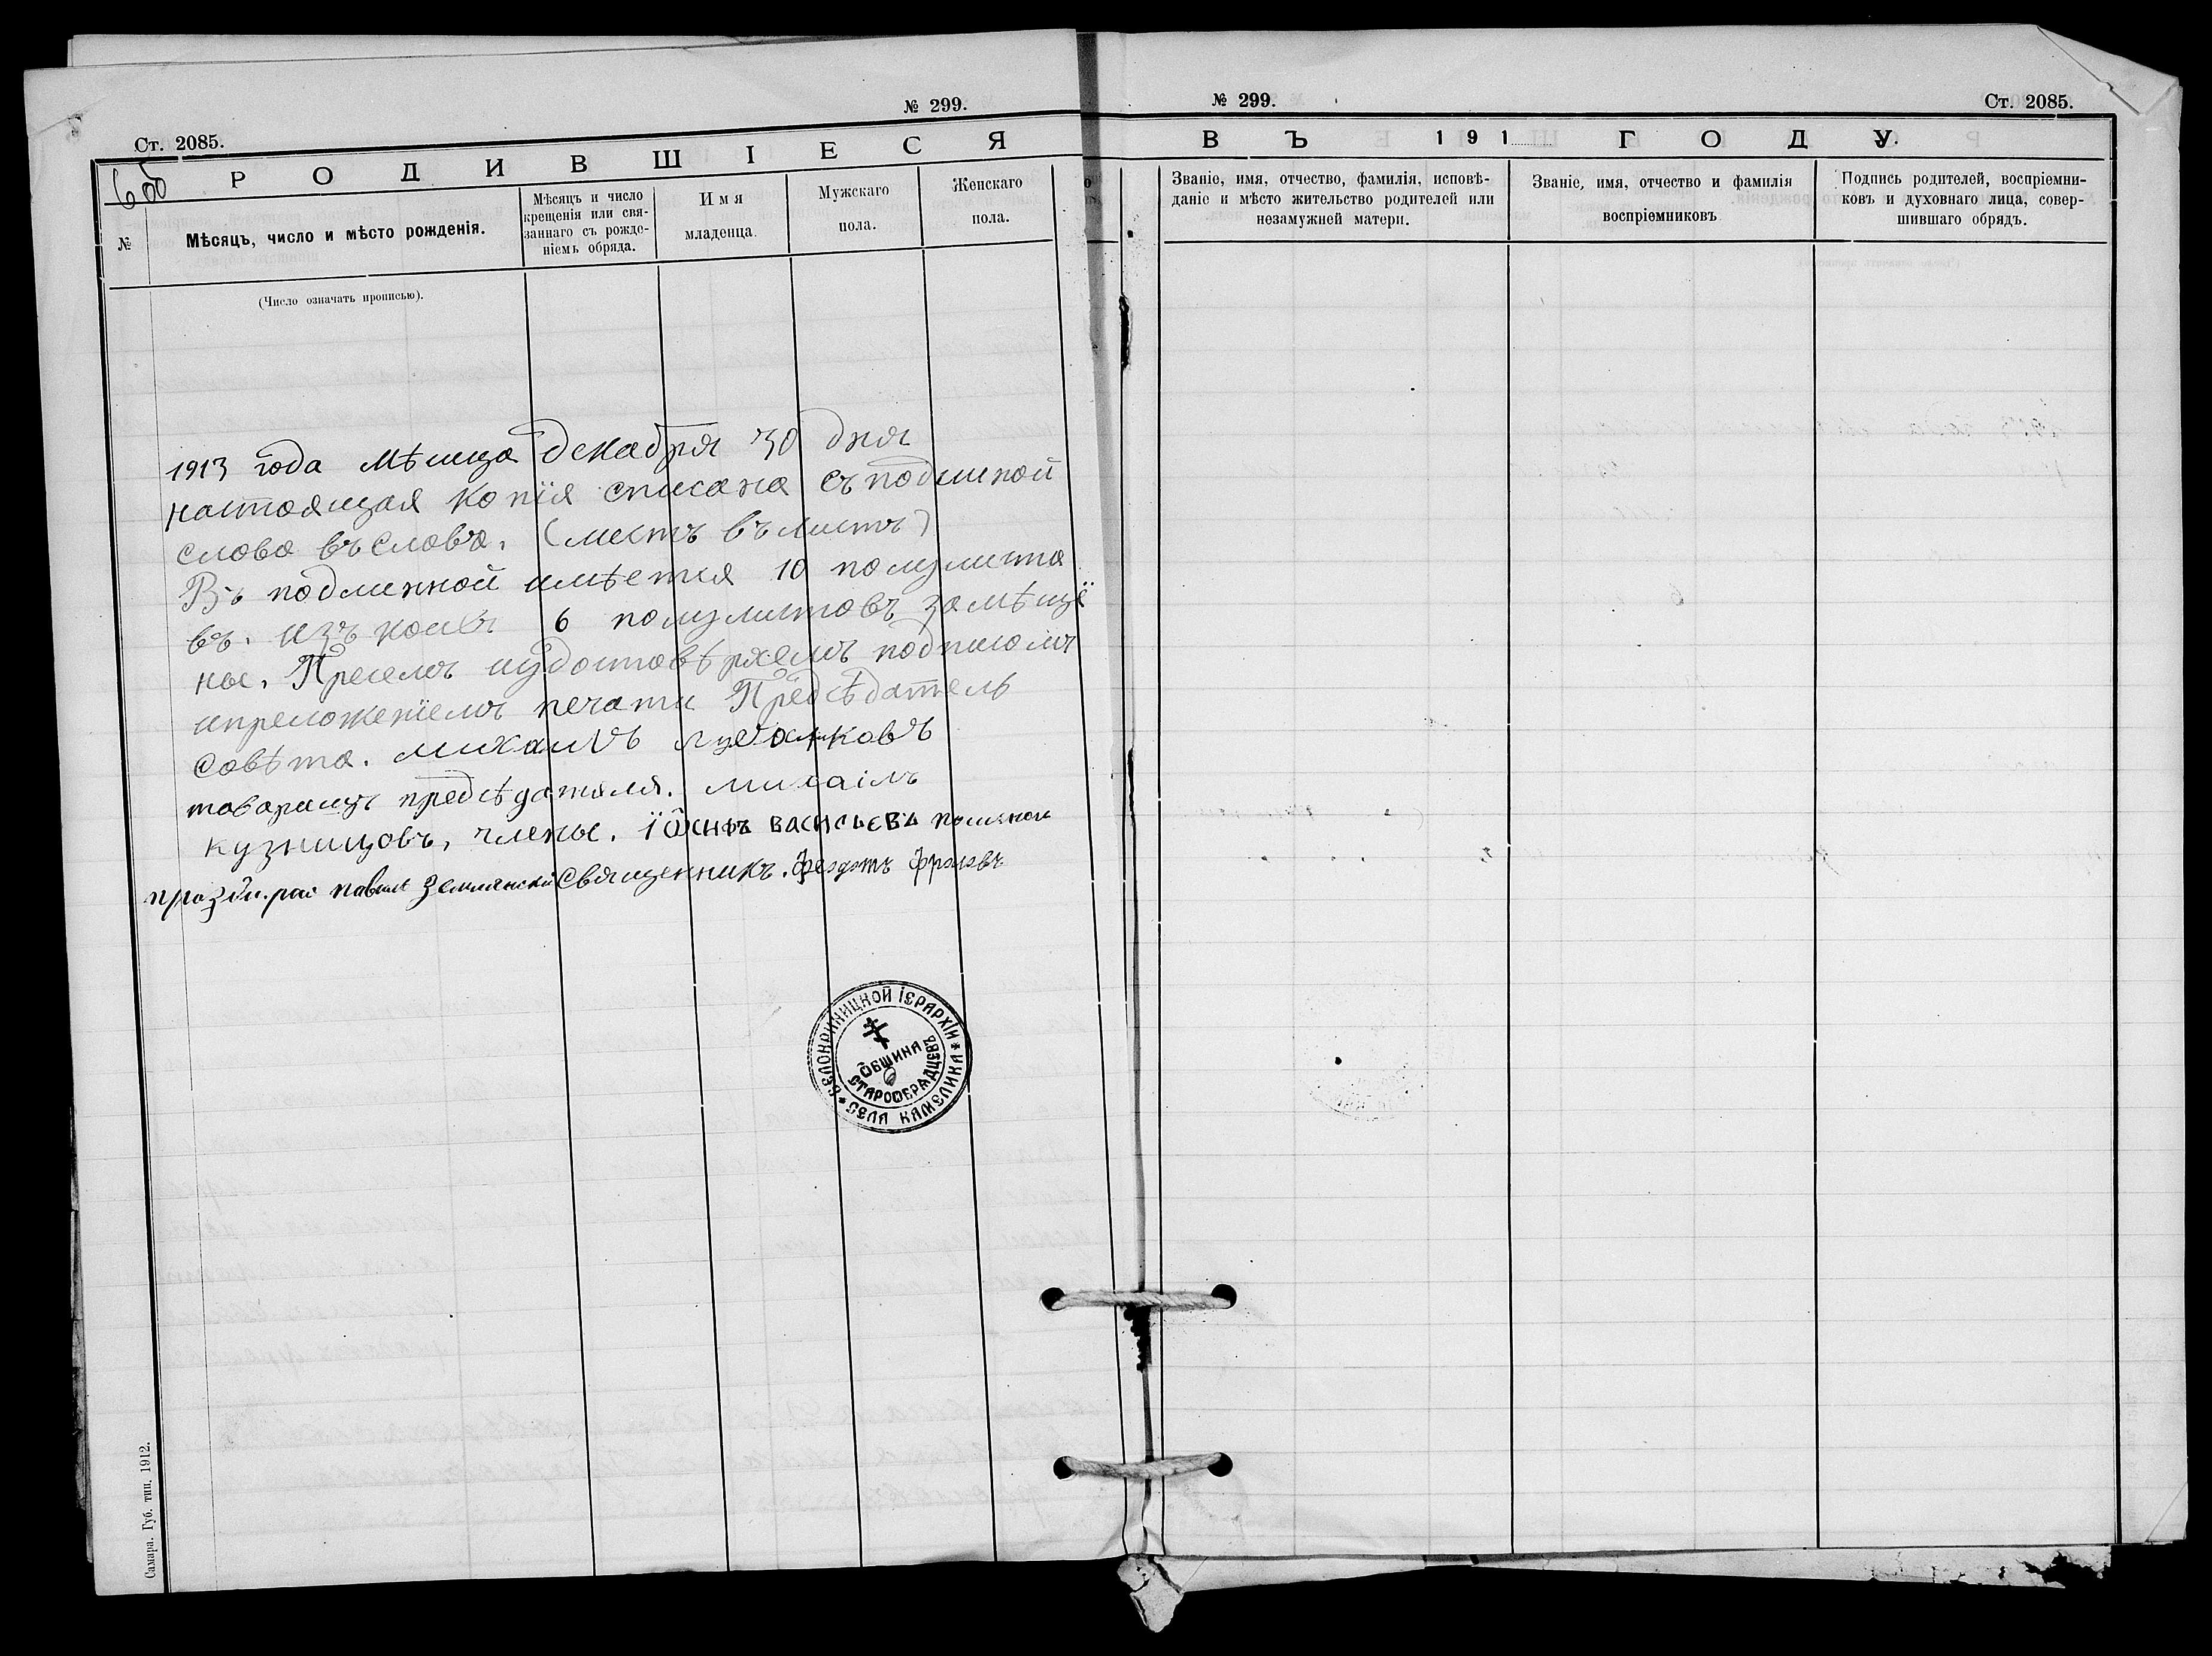 № 299.
Ст. 2085.
Р О Д И В Ш І Е С Я
№
Мѣсяцъ, число и мѣсто рожденія.
Мѣсяцъ и число
крещенія или свя-
заннаго съ рожде-
ніемъ обряда.
Имя
младенца.
Мужскаго
пола.
Женскаго
пола.
(Число означать прописью).
1913 года мѣсица декабря 30 дня
настоящая копїя списана съ подлиной
слово въ слово. (листъ въ листъ)
Въ подлинной имѣется 10 полулисто
въ. изъ коихъ 6 полулистовъ замѣщё
ны. Преселъ иудостовѣряемъ подписомъ
ипреложенїемъ печати Предсѣдатель
Совѣта. михаилъ
товарищъ предсѣдателя. михаілъ
кузницовъ, члены. їѡсифъ васильєвъ
павилъ Землянскій Священникъ. Федотъ Фроловъ
БЕЛОКРИНИЦКОЙ ІЄРАРХІИ * СЕЛА КАМЕЛИКА *
ѺБЩИНА
СТАРОѠБРЯДЦЕВЪ
Самара. Губ. тип. 1912.
№ 299.
Ст. 2085.
В Ъ 191 Г О Д У.
Званіе, имя, отчество, фамилія, исповѣ-
даніе и мѣсто жительство родителей или
незамужней матери.
Званіе, имя, отчество и фамилія
воспріемниковъ
Подпись родителей, воспріемни-
ковъ и духовнаго лица, совер-
шившаго обрядъ.